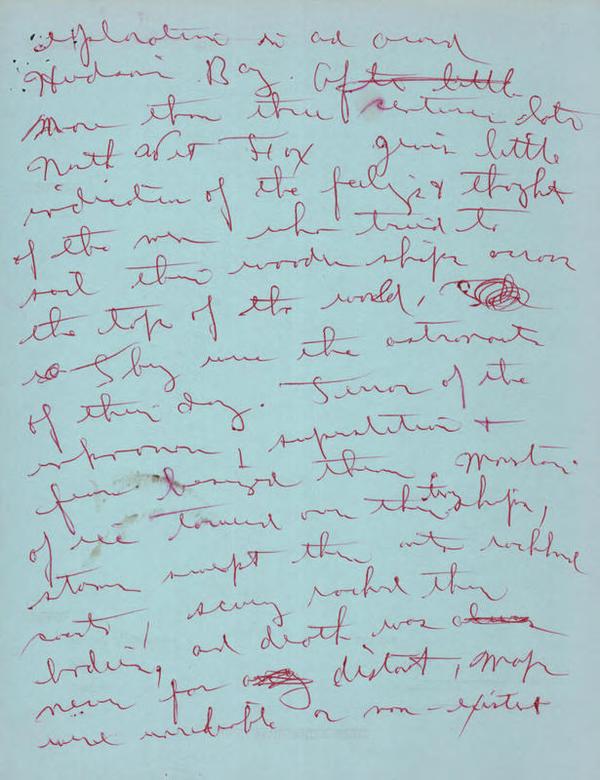 exploration in and around
Hudson Bay. After little
more than three centuries later
North West Fox gives little
indication of the feelings & thoughts
of the men who tried to
sail their wooden ships across
the top of the world,
They were the astronauts
of their day. Terror of the
unknown, superstition &
fear besieged them. Mountains
of ice towered over their tiny ships,
storms swept them onto rockbound
coasts, scurvy racked their
bodies, and death was
never far distant, maps
were unreliable or non-existent